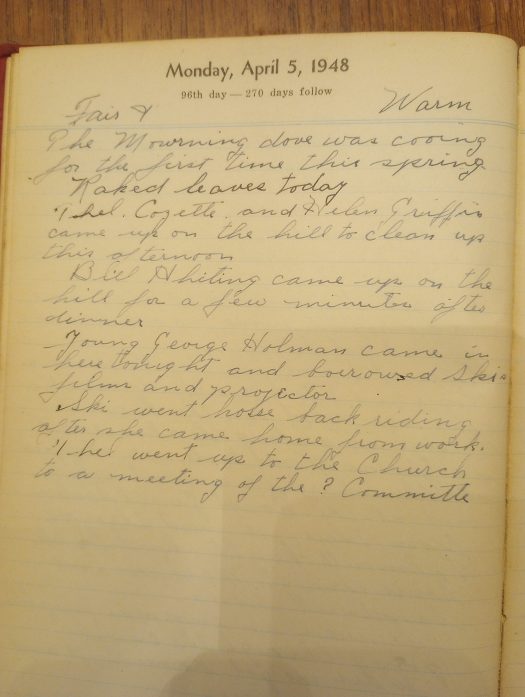 Monday, April 5, 1948
96th day — 270 days follow
Fair & Warm
The Mourning dove was cooing
for the first time this spring
Raked leaves today
Thel. Cozette. and Helen Griffin
came up on the hill to clean up
this afternoon
Bill Whiting came up on the
hill for a few minutes after
dinner
Young George Holman came in
here tonight and borrowed Ski's
films and projector
Ski went horse back riding
after she came home from work.
Thel went up to the Church
to a meeting of the ? Committe